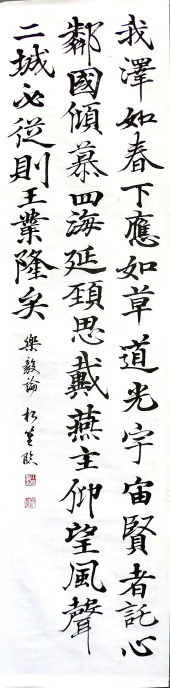 我澤如春下應如草道光宇宙賢者託心
鄰國傾慕四海延頚思戴燕主仰望風聲
二城必從則王業隆矣
樂毅論